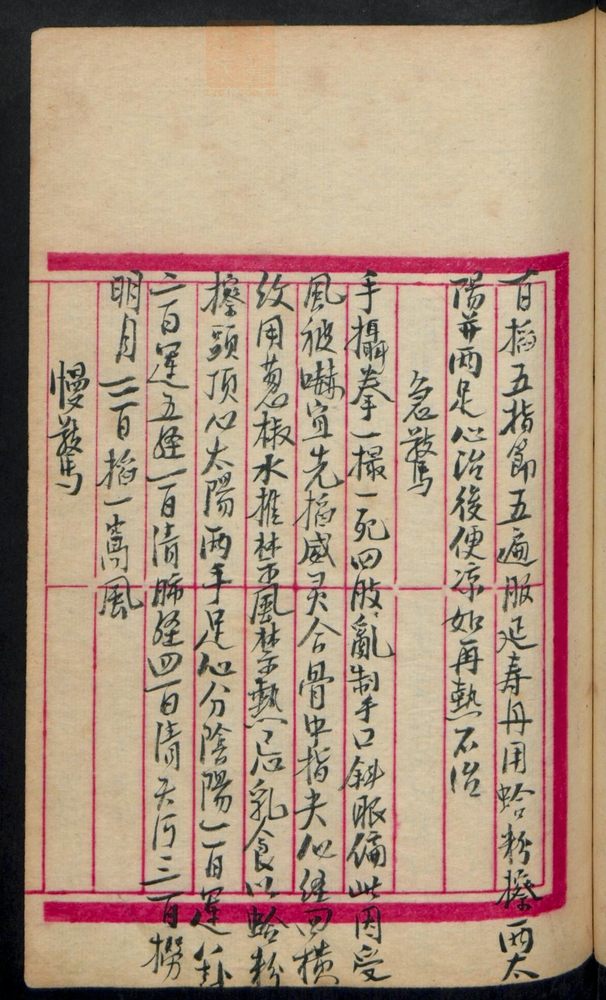 百掐五指節五遍服延寿丹用蛤粉擦両太
陽并両足心治後便凉如再熱不治
急驚
手攝拳一撮一死四肢乱制手口斜眼偏此因受
風被嚇宜先掐威灵合骨中指夹心経四横
纹用葱椒水推禁風禁熱忌乳食以蛤粉
擦頭頂心太陽両手足心分陰陽一百運卦
二百運五経一百清肺経四百清天河三百撈
明月二百掐一窩風
慢驚